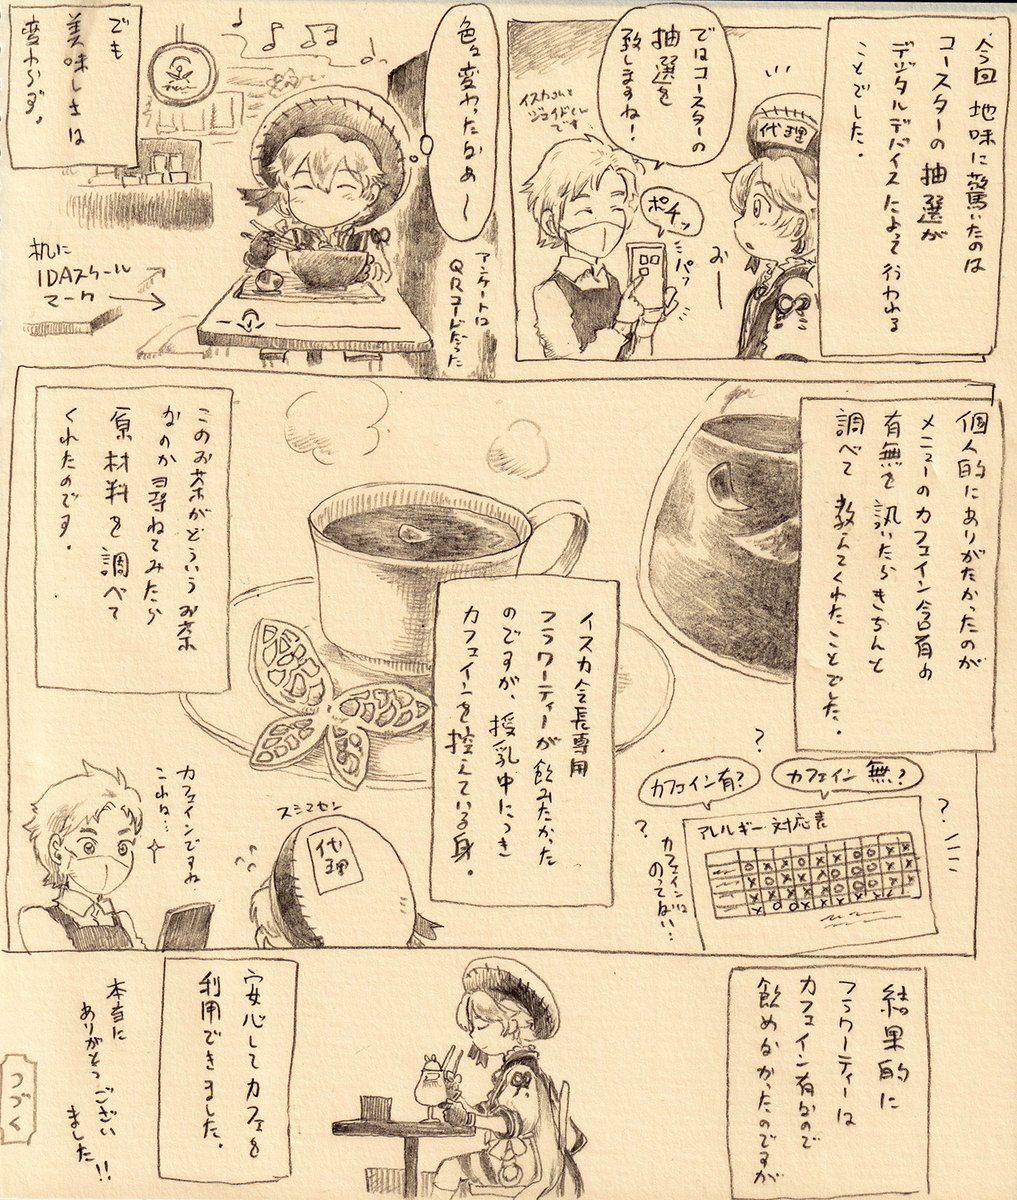 今回 地味に驚いたのは
コースターの 抽選が
デジタルデバイスによって行われる
ことでした.
代理
ではコースターの
抽選を
致しますね!
イスカさんと
ジェイドくん
です
ポチッ
パッ
おー
色々変わったなぁ〜
アンケートは
QRコードだった
でも
美味しさは
変わらず.
机に
IDAスクール
マーク
個人的にありがたかったのが
メニューのカフェイン含有の
有無を 訊いたらきちんと
調べて 教えてくれたことでした.
イスカ会長専用
フラワーティーが 飲みたかった
のですが、授乳中につき
カフェインを控えている身.
このお茶がどういうお茶
なのか尋ねてみたら
原材料を調べて
くれたのです.
?
カフェイン 無?
カフェイン有?
?
?
アレルギー対応表
カフェインは
のってない…
スミマセン
代理
カフェインですね
これは…
結果的に
フラワーティーは
カフェイン有なので
飲めなかったのですが
安心してカフェを
利用できました.
本当に
ありがとうござい
ました!!
つづく